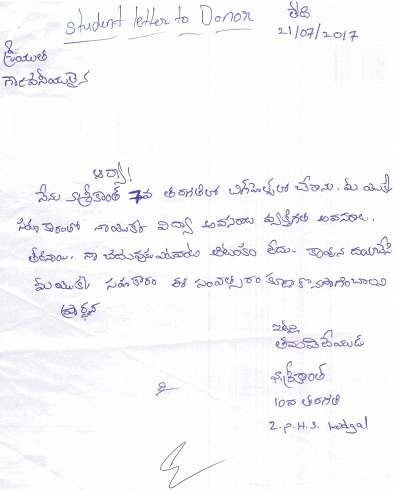 student letter to Donor
తేది
21/07/2017
శ్రీయుత
గౌరవనీయులైన
ఆర్యా!
నేను శ్రీకాంత్ 7వ తరగతిలో చేరాను. మీ యొక్క
సహకారంతో నాయొక్క విద్యా అవసరాలు వ్యక్తిగత అవసరాలు
తీరినాయి. నా చదువుకు ఎటువంటి ఆటంకం లేదు. కావున దయచేసి
మీ యొక్క సహకారం ఈ సంవత్సరం కూడా కొనసాగించాలని
ప్రార్థన
ఇట్లు
తమ విధేయుడు
శ్రీకాంత్
10వ తరగతి
Z.P.H.S. Kodgal